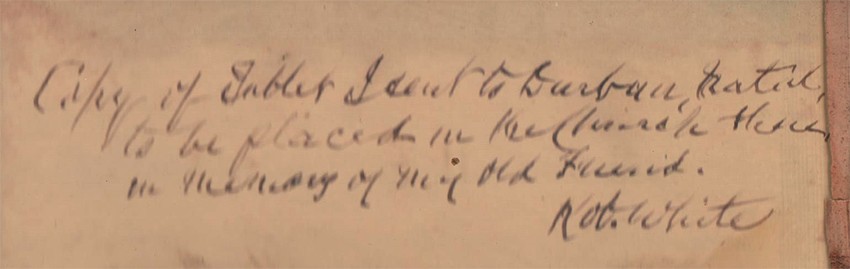 Copy of Tablet I sent to Durban, Natal,
to be placed in the Church there
in memory of my Old Friend.
Rob. White